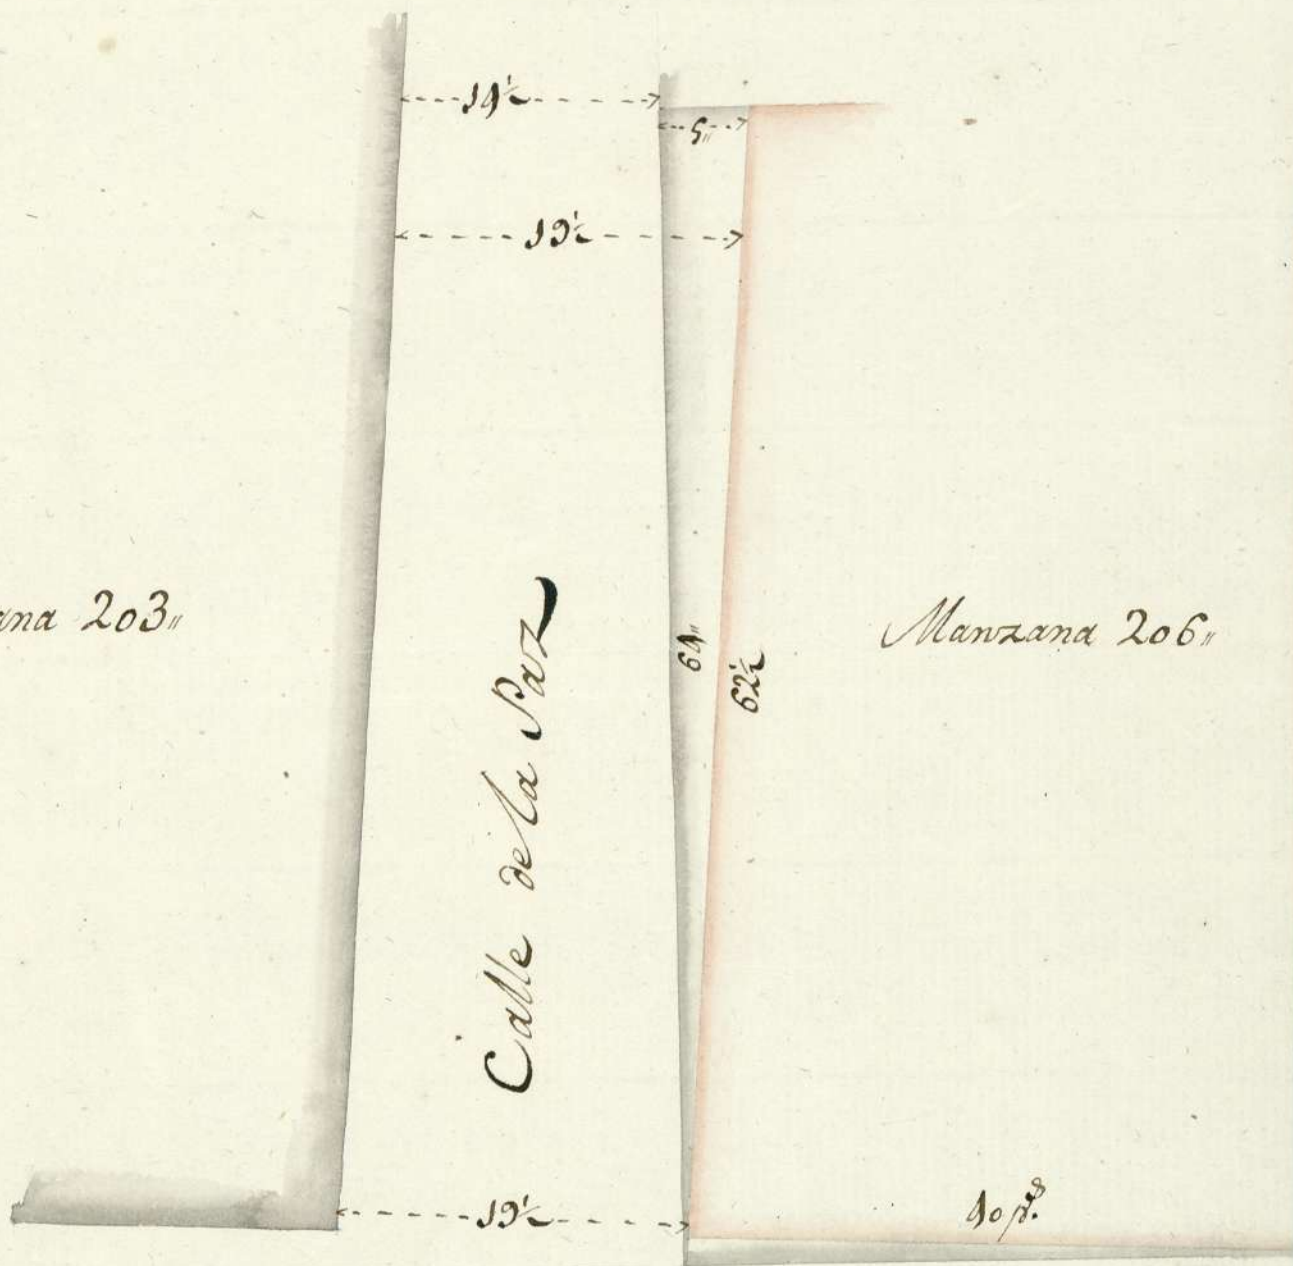 14½
5"
19½
ana 203"
Calle de la Paz
64"
62½
Manzana 206"
19½
40 p.^s